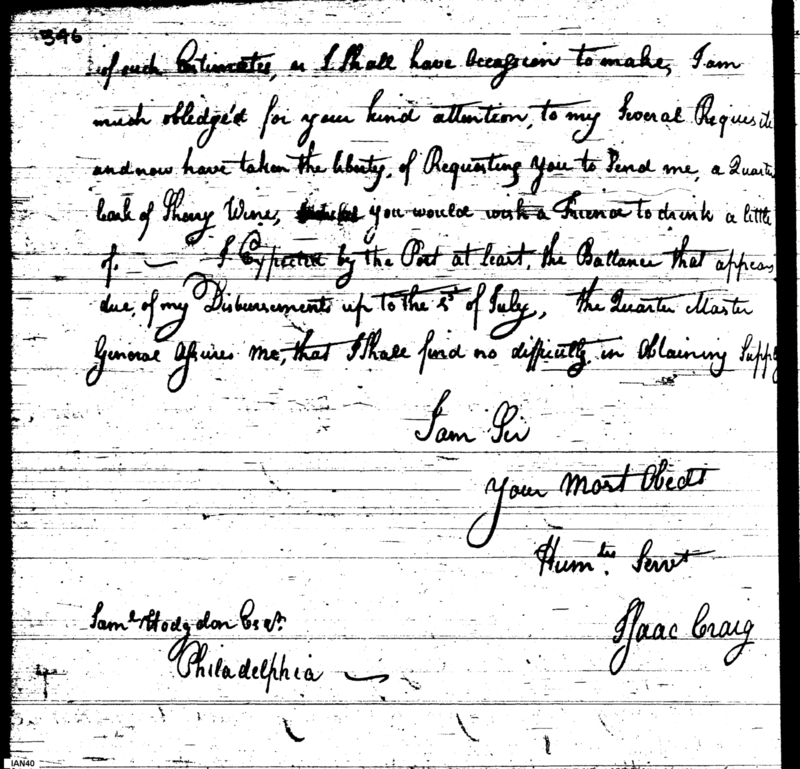 396
of such Estimates, as I Shall have occassion to make, I am
much obledge'd for your kind attention, to my Several Requisiti
and now have taken the liberty, of Requesting you to Send me, a Quarter
Cask of Sherry Wine, you would wish a Friend to drink a little
of. — I Expected by the Post at least, the Ballance that appears
due, of my Disbursements up to the of July, the Quarter Master
General Assures me, that I Shall find no difficulty in Obtaining Supply
I am Sir
Your Most Obedt
Humble Servt
Isaac Craig
Saml Hodgdon Esqr.
Philadelphia —
IAN40